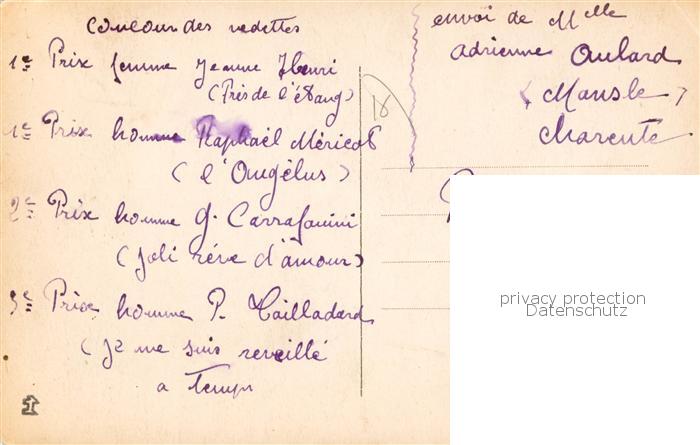 concours des vedettes
1e Prix femme Jeanne Henri
(Près de l'étang)
1e Prix homme Raphaël Méricot
(l'Angélus)
2e Prix homme G. Carrafanini
(Joli rêve d'amour)
3e Prix homme P. Tailladard
(Je me suis reveillé
a temps
18
envoi de Melle
Adrienne Aulard
(Mansle)
Charente
privacy protection
Datenschutz